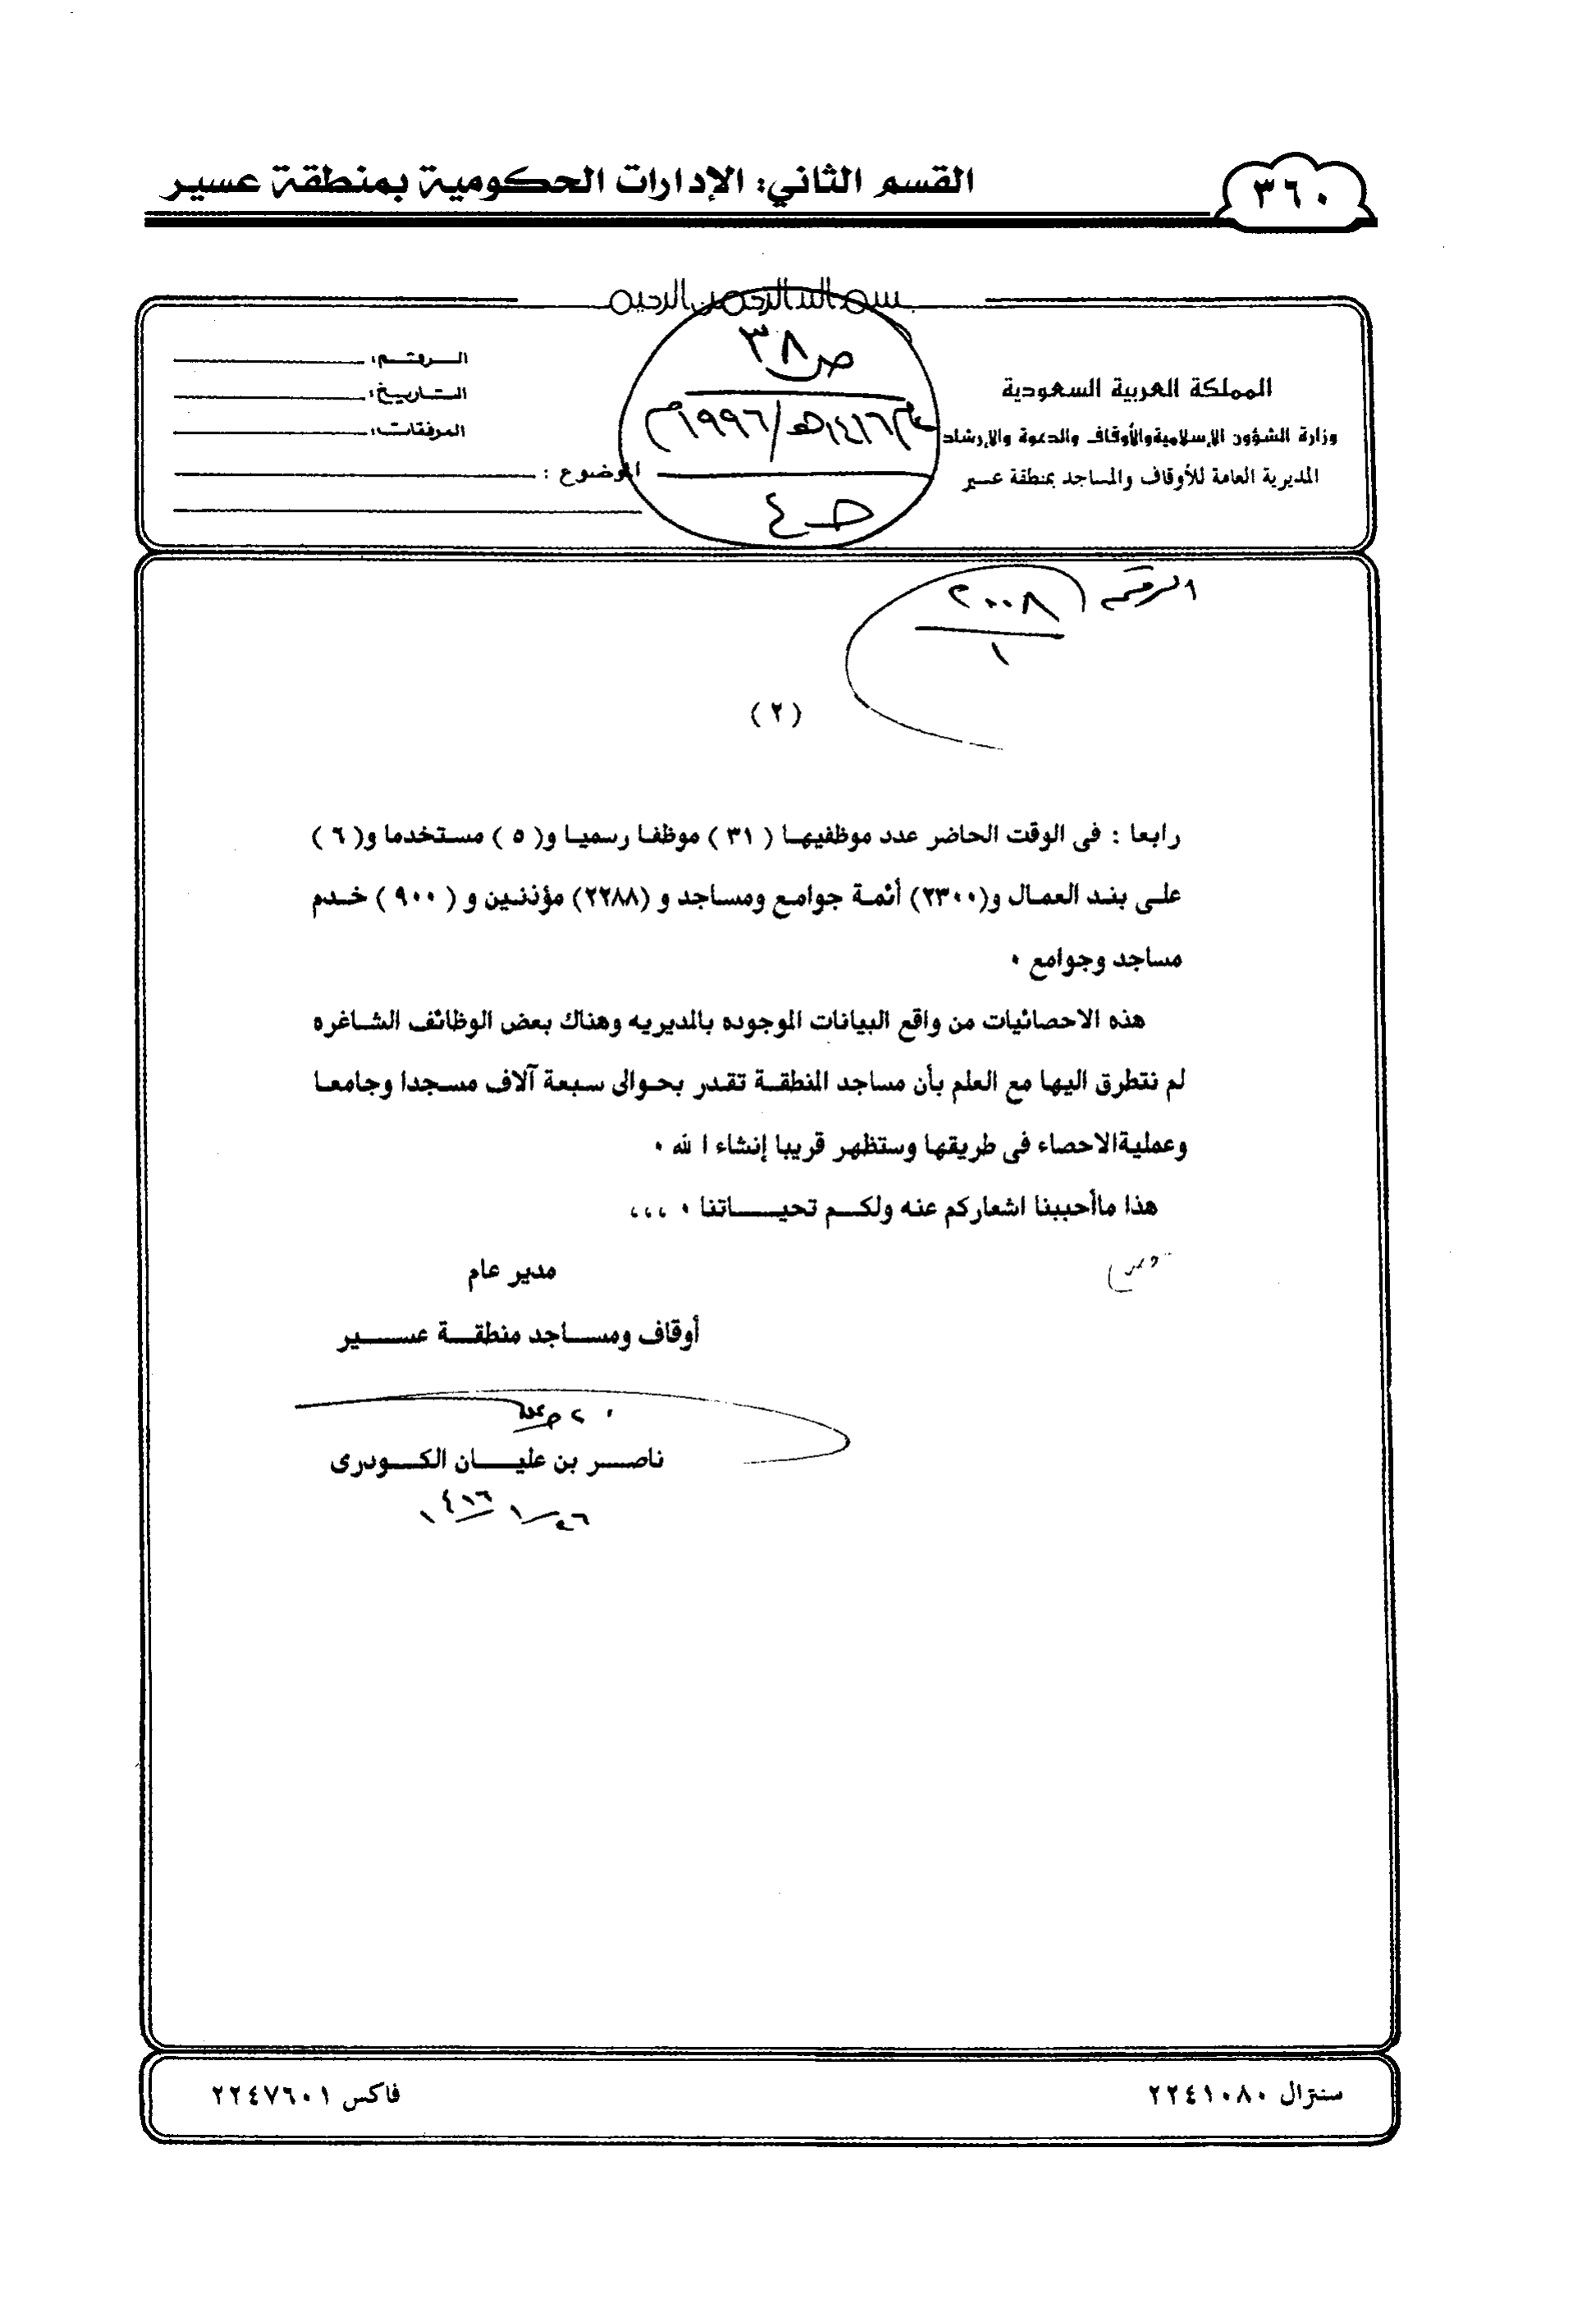 ٣٦٠
القسم الثاني: الإدارات الحكومية بمنطقة عسير
بسم الله الرحمن الرحيم
المملكة العربية السعودية
وزارة الشؤون الإسلامية والأوقاف والدعوة والإرشاد
المديرية العامة للأوقاف والمساجد بمنطقة عسير
ص ٣٨
عام ١٤١٦هـ/١٩٩٦م
حـ ٤
الـرقـم:
التـاريخ:
المرفقات:
الموضوع :
الرقم ٢٠٠٨
١
(٢)
رابعا : فى الوقت الحاضر عدد موظفيها (٣١) موظفا رسميا و(٥) مستخدما و(٦)
على بند العمال و(٢٣٠٠) أئمة جوامع ومساجد و (٢٢٨٨) مؤذنين و (٩٠٠) خدم
مساجد وجوامع ٠
هذه الاحصائيات من واقع البيانات الموجوده بالمديريه وهناك بعض الوظائف الشاغره
لم نتطرق اليها مع العلم بأن مساجد المنطقة تقدر بحوالى سبعة آلاف مسجدا وجامعا
وعملية الاحصاء فى طريقها وستظهر قريبا إنشاء الله ٠
هذا ماأحببنا اشعاركم عنه ولكم تحيــاتنا ٠ ،،،
مدير عام
أوقاف ومساجد منطقة عسير
ناصر بن عليان الكودرى
٢٦/١/١٤١٦
سنترال ٢٢٤١٠٨٠
فاكس ٢٢٤٧٦٠١